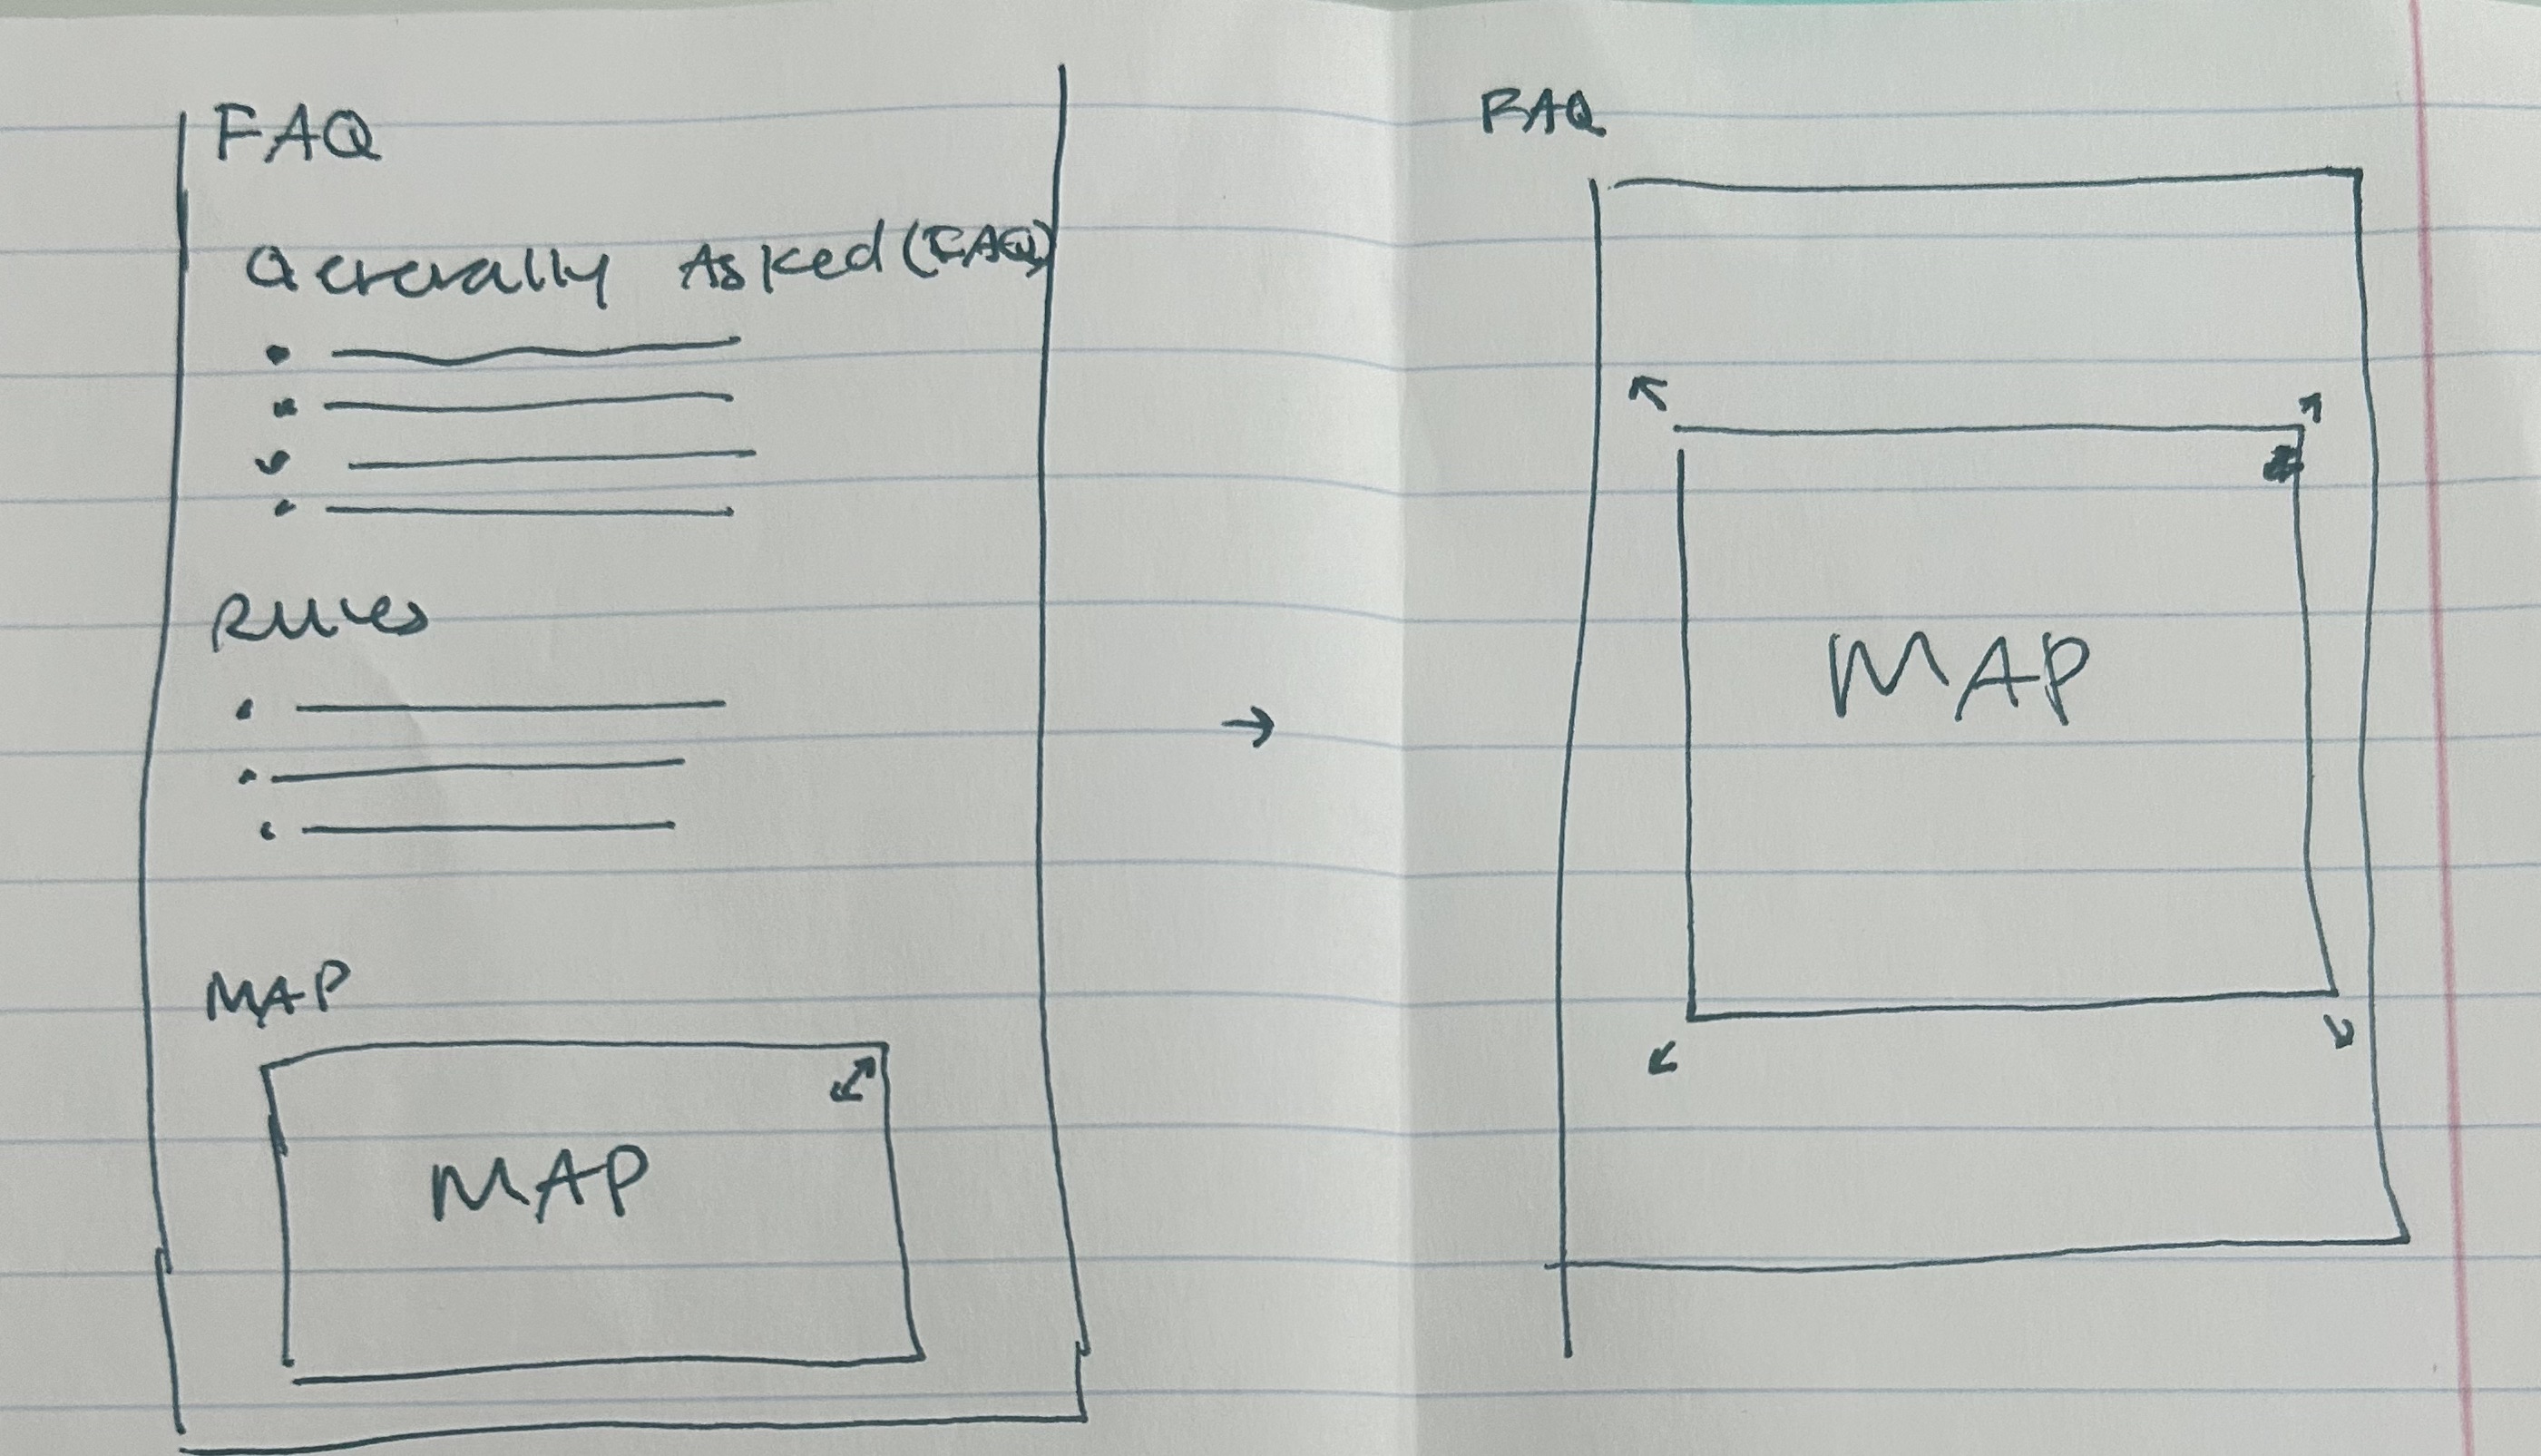 FAQ
Generally Asked (FAQ)
Rules
MAP
MAP
FAQ
MAP